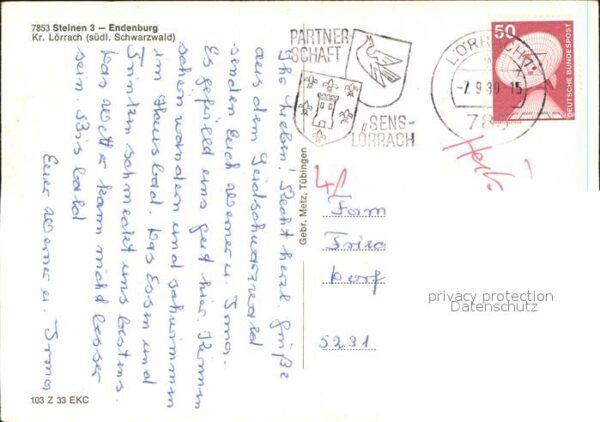 7853 Steinen 3 — Endenburg
Kr. Lörrach (südl. Schwarzwald)
Ihr Lieben! Recht herzl. Grüße
aus dem Südschwarzwald
senden Euch Werner u. Irma.
Es gefällt uns gut hier. Können
schön wandern und schwimmen
im Hausbad. Das Essen und
Trinken schmeckt uns bestens.
Das Wetter kann nicht besser
sein. Bis bald
Euer Werner u. Irma
103 Z 33 EKC
Gebr. Metz, Tübingen
PARTNER-
SCHAFT
SENS-
LÖRRACH
LÖRRACH 1
-7.9.80-15
50
DEUTSCHE BUNDESPOST
Fam
Dorf
5231
privacy protection
Datenschutz